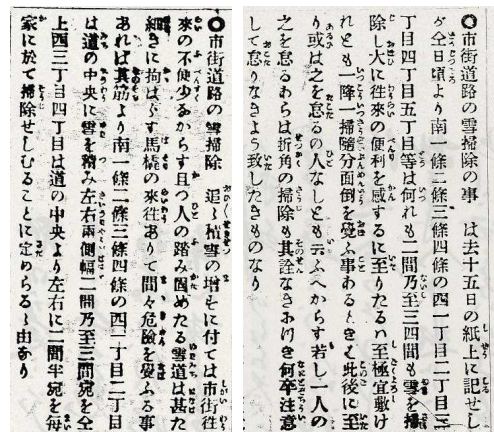 ○市街道路の雪掃除の事　は去十五日の紙上に記せし
が仝日頃より南一條二條三條四條の西一丁目二丁目三
丁目四丁目五丁目等は何れも二間乃至三四間も雪を掃
除し大に往來の便利を感するに至りたるハ至極宜敷け
れとも一降一掃隨分面倒を覺ふ事わるときと此後に至
り或は之を怠るの人なしとも云ふへからす若し一人の
之を怠るわらは折角の掃除も其詮なきわけき何卒注意
して怠りなきよう致したきものなり
○市街道路の雪掃除　追々積雪の增すに付ては市街往
來の不便少なからす且つ人の踏み固めたる雪道は甚た
細きに拘はらす馬橇の來往ありて間々危險を覺ふる事
あれば其筋より南一條二條三條四條の西一丁目二丁目
は道の中央に雪を積み左右兩側幅二間乃至三間宛を仝
上西三丁目四丁目は道の中央より左右に二間半宛を每
家に於て掃除せしむることに定めらるゝ由なり